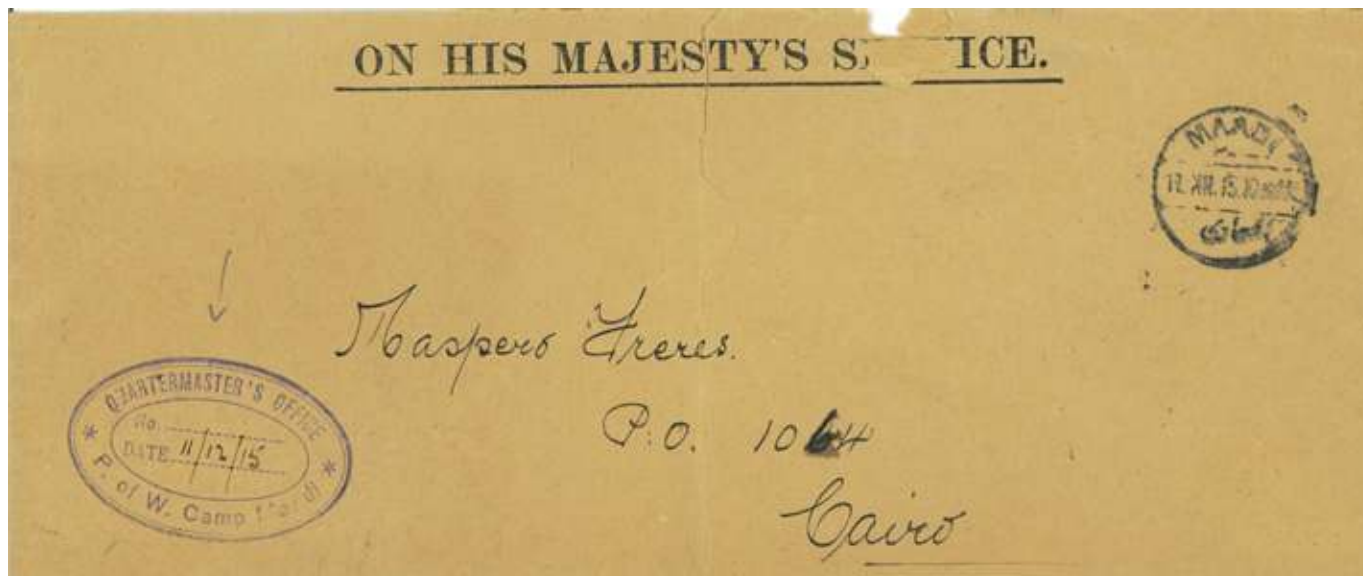 ON HIS MAJESTY'S S ICE.
MAADI
المعادى
Maspero Freres.
P.O. 1064
Cairo
QUARTERMASTER'S OFFICE
No.
DATE 11/12/15
P. of W. Camp